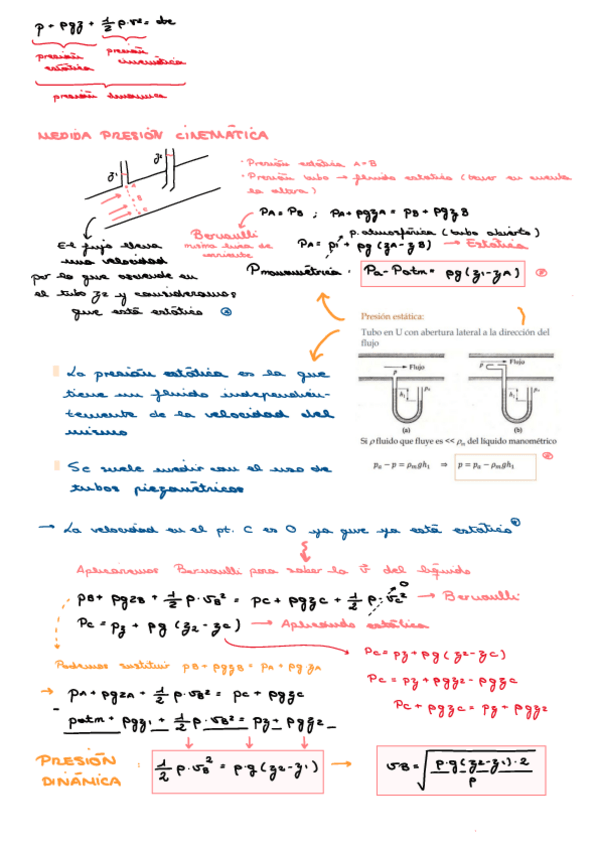 p + ρgz + 1/2 ρ·v² = cte
presión estática
presión cinemática
presión dinámica
MEDIDA PRESIÓN CINEMÁTICA
z1
z2
· Presión estática A = B
· Presión tubo → fluido estático (tener en cuenta
la altura)
PA = PB ; PA + ρgzA = PB + ρgzB
Bernoulli
misma línea de
corriente
p. atmosférica (tubo abierto)
PA = p1 + ρg (zA - zB) → Estática
Pmanométrica : Pa - Patm = ρg (z1 - zA)
El flujo lleva
una velocidad
por lo que asciende en
el tubo z2 y consideramos
que está estático
Presión estática:
Tubo en U con abertura lateral a la dirección del
flujo
Flujo
p
h₁
pₐ
(a)
Flujo
p
h₁
pₐ
(b)
Si ρ fluido que fluye es << ρm del líquido manométrico
pₐ - p = ρm g h₁ ⇒ p = pₐ - ρm g h₁
La presión estática es la que
tiene un fluido independien-
temente de la velocidad del
mismo
Se suele medir con el uso de
tubos piezométricos
→ La velocidad en el pt. C es 0 ya que ya está estático
Aplicaremos Bernoulli para saber la v⃗ del líquido
PB + ρgzB + 1/2 ρ·vB² = PC + ρgzC + 1/2 ρ·vC² 0 → Bernoulli
PC = Pz + ρg (z2 - zC) → Aplicando estática
PC = Pz + ρg (z2 - zC)
PC = Pz + ρgz2 - ρgzC
PC + ρgzC = Pz + ρgz2
Podemos sustituir PB + ρgzB = PA + ρg·zA
→ PA + ρgzA + 1/2 ρ·vB² = PC + ρgzC
- Patm + ρgz1 + 1/2 ρ·vB² = Pz + ρgz2
PRESIÓN
DINÁMICA : 1/2 ρ·vB² = ρ·g (z2 - z1) → vB = √(ρ·g (z2 - z1)·2 / ρ)